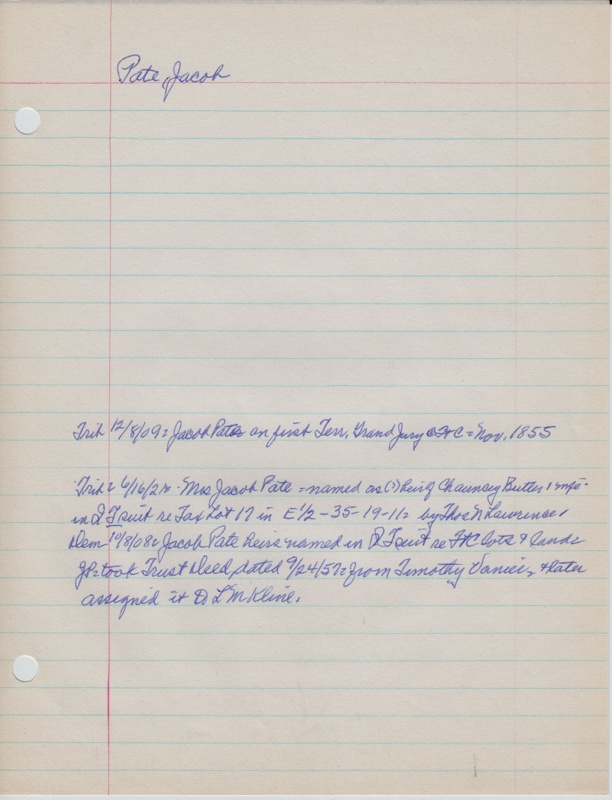 Pate, Jacob
Trib 12/8/09 = Jacob Pate on first Terr. Grand Jury = Nov. 1855
Trib = 6/16/21 = Mrs Jacob Pate = named as (?) heir of Chauncey Butler &
in Q T suit re Tax Lot 17 in E 1/2 - 35-19-11 = by Thos N Lawrence,
Dem 10/8/08 = Jacob Pate heirs named in Q T suit re FtC lots & lands
JP = took Trust Deed, dated 9/24/57 = from Timothy & later
assigned it to L M Kline.